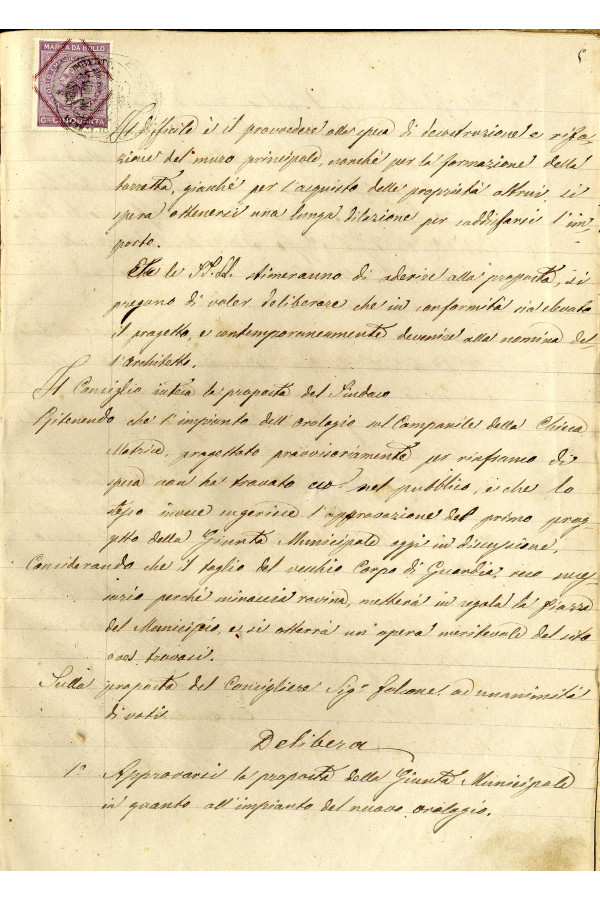 MARCA DA BOLLO
CENT CINQUANTA
5
difficile è il provvedere alla spesa di decostruzione e rifa-
zione del muro principale, nonché per la formazione della
torretta, giacché per l'acquisto delle proprietà altrui si
spera ottenersi una lunga dilazione per soddisfarsi l'im
porto.
le SS. LL. stimeranno di aderire alla proposta, si
pregano di voler deliberare che in conformità sia elevato
il progetto, e contemporaneamente devenire alla nomina del
l'architetto.
Il Consiglio intesa la proposta del Sindaco
Ritenendo che l'impianto dell'orologio sul Campanile della Chiesa
Matrice, progettato provvisoriamente per rinfranco di
spesa non ha trovato eco nel pubblico, e che lo
stesso invece sugerisce l'approvazione del primo prog
getto della Giunta Municipale oggi in discussione.
Considerando che il taglio del vecchio Corpo di Guardia, reso neces
sario perché minaccia rovina, metterà in regola la piazza
del Municipio, e si otterrà un'opera meritevole del sito
ove trovasi.
Sulla proposta del Consigliere Sigr Falcone ad unanimità
di voti
Delibera
1° Approvarsi la proposta della Giunta Municipale
in quanto all'impianto del nuovo orologio.